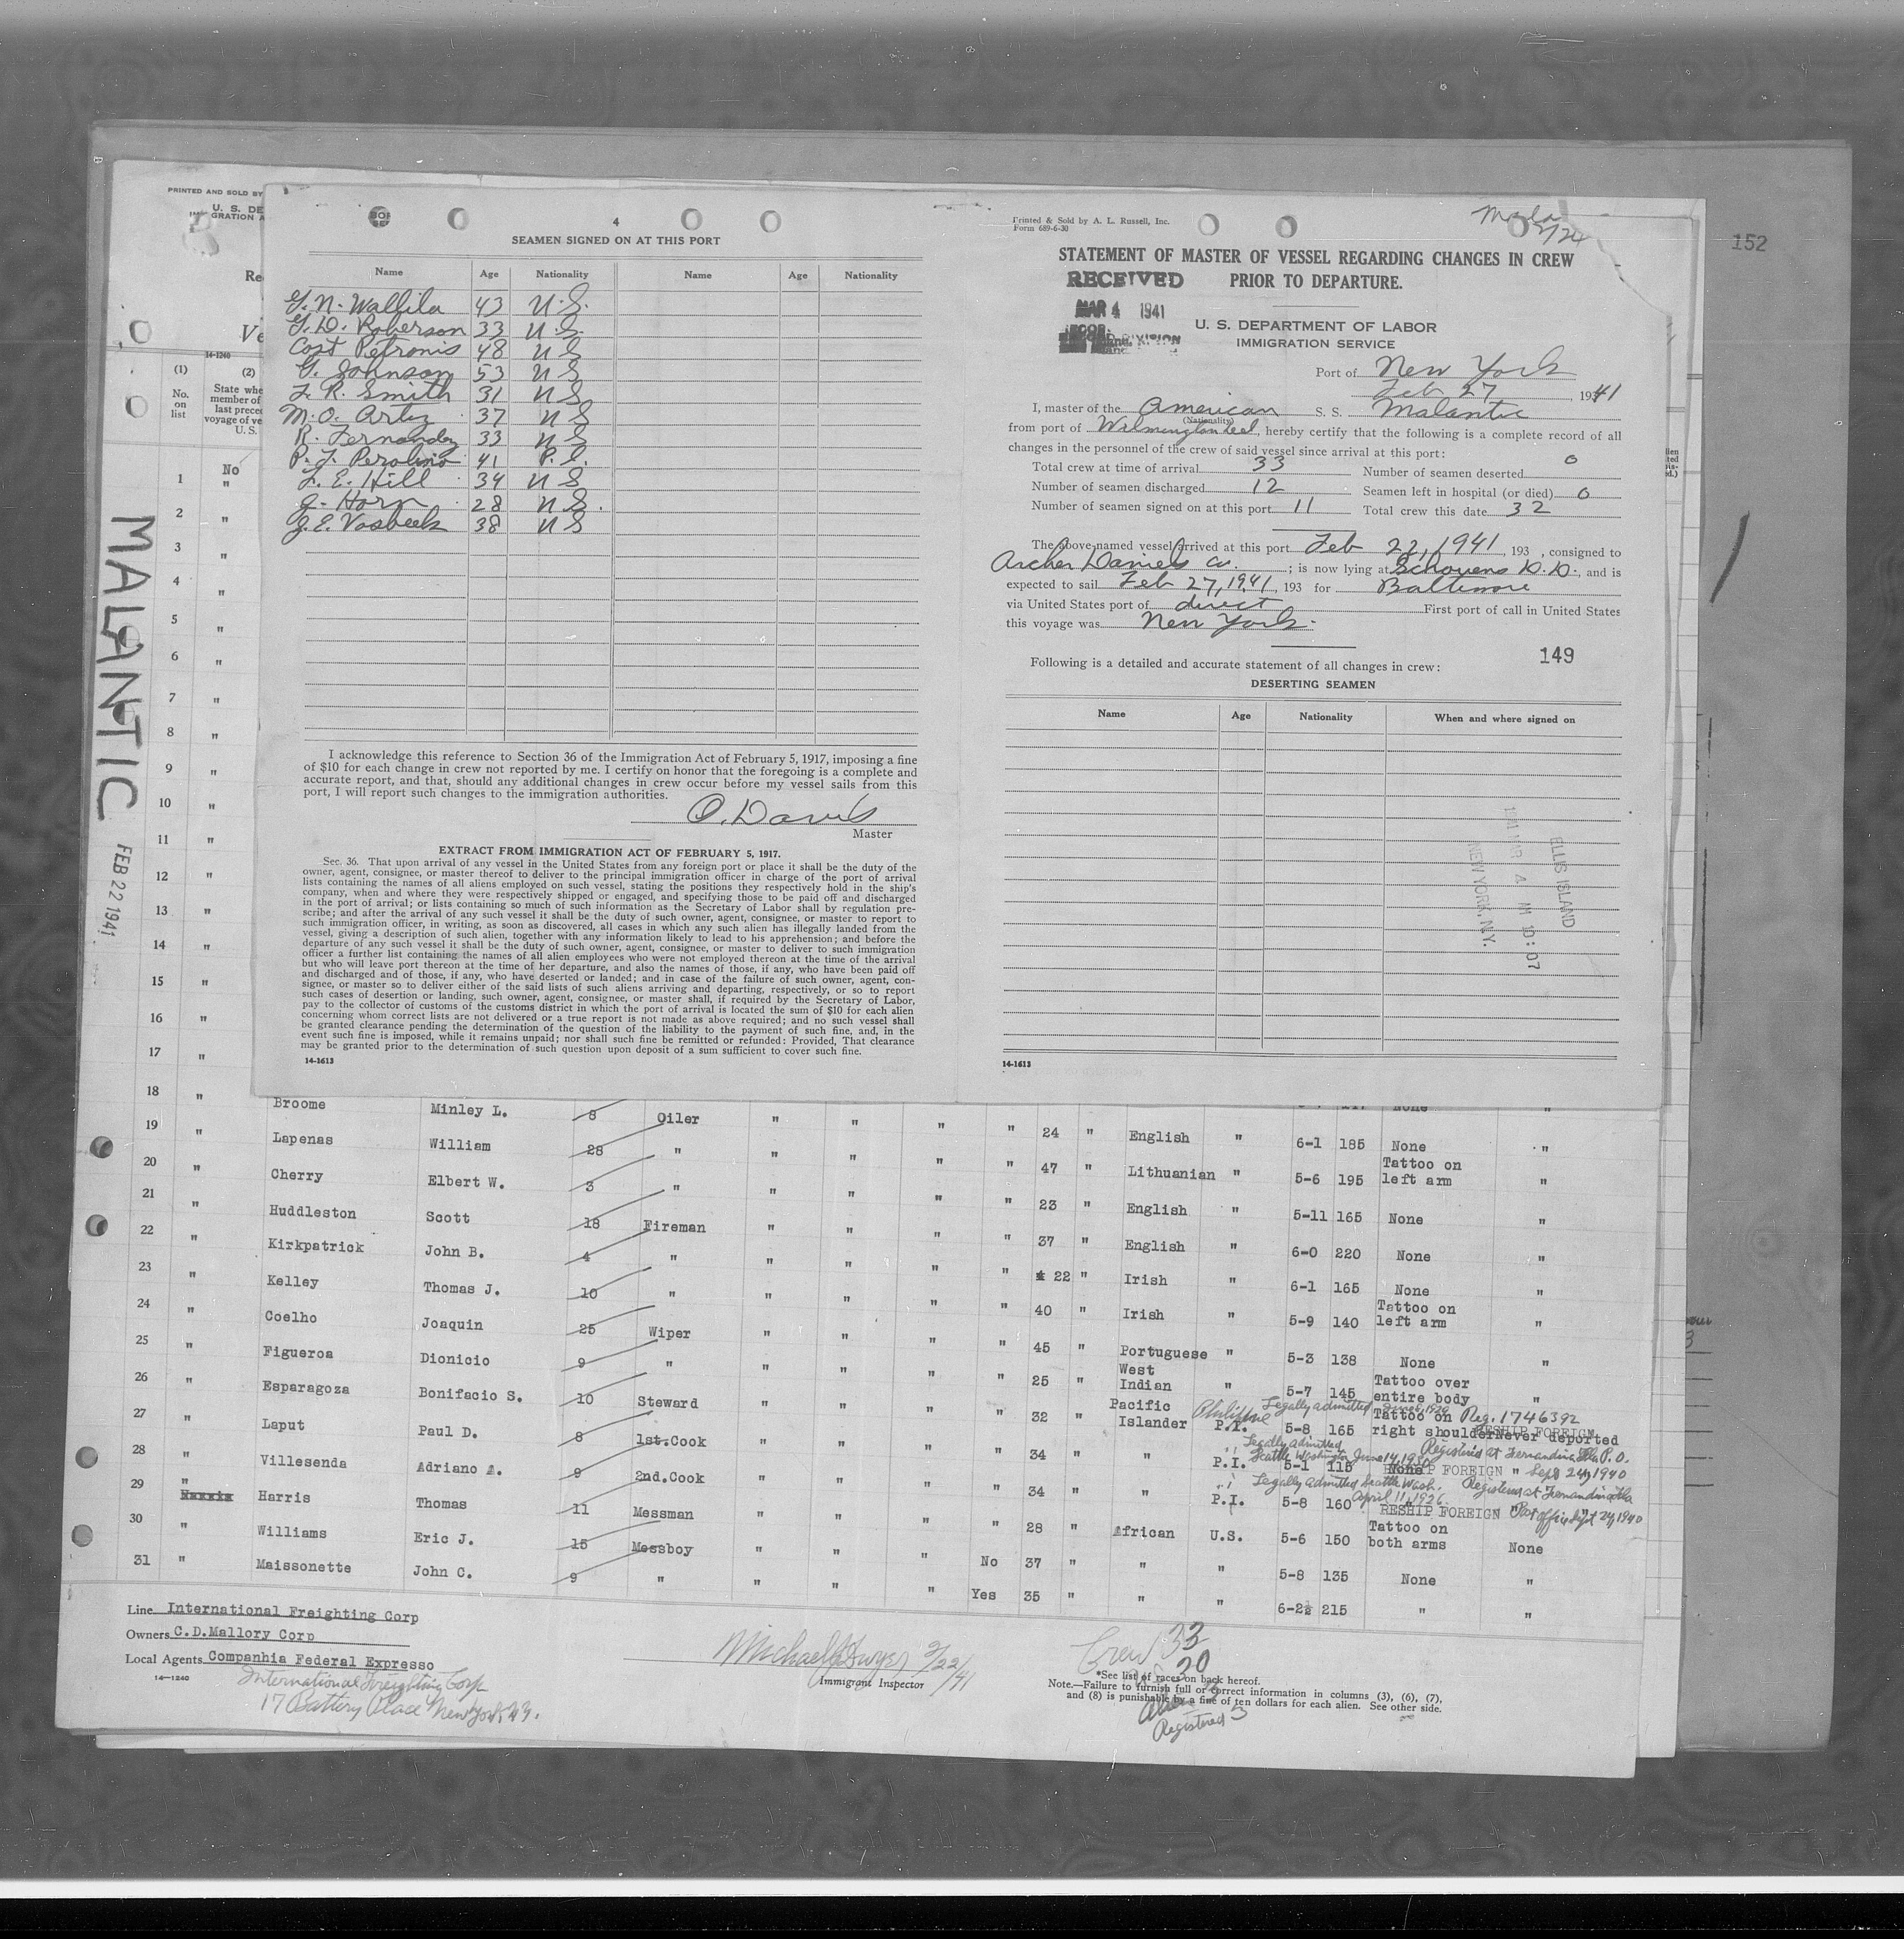 152
PRINTED AND SOLD BY
U. S. DE
GRATION A
Re
Ve
14-1240
(1)
(2)
No.
on
list
State whe
member of
last prece
voyage of ve
U. S.
MALANTIC
FEB 22 1941
4
SEAMEN SIGNED ON AT THIS PORT
Name Age Nationality Name Age Nationality
G. N. Wallila 43 U.S.
G. D. Roberson 33 U.S.
Cost Petronis 48 U S
G. Johnson 53 U S
L. R. Smith 31 U S
M. O. Artiz 37 U S
R. Fernandez 33 U S
P. J. Perolino 41 P. I.
L. E. Hill 34 U S
J. Horn 28 U S.
J. E. Vosbeek 38 U S
I acknowledge this reference to Section 36 of the Immigration Act of February 5, 1917, imposing a fine
of $10 for each change in crew not reported by me. I certify on honor that the foregoing is a complete and
accurate report, and that, should any additional changes in crew occur before my vessel sails from this
port, I will report such changes to the immigration authorities.
O. Davis
Master
EXTRACT FROM IMMIGRATION ACT OF FEBRUARY 5, 1917.
Sec. 36. That upon arrival of any vessel in the United States from any foreign port or place it shall be the duty of the
owner, agent, consignee, or master thereof to deliver to the principal immigration officer in charge of the port of arrival
lists containing the names of all aliens employed on such vessel, stating the positions they respectively hold in the ship's
company, when and where they were respectively shipped or engaged, and specifying those to be paid off and discharged
in the port of arrival; or lists containing so much of such information as the Secretary of Labor shall by regulation pre-
scribe; and after the arrival of any such vessel it shall be the duty of such owner, agent, consignee, or master to report to
such immigration officer, in writing, as soon as discovered, all cases in which any such alien has illegally landed from the
vessel, giving a description of such alien, together with any information likely to lead to his apprehension; and before the
departure of any such vessel it shall be the duty of such owner, agent, consignee, or master to deliver to such immigration
officer a further list containing the names of all alien employees who were not employed thereon at the time of the arrival
but who will leave port thereon at the time of her departure, and also the names of those, if any, who have been paid off
and discharged and of those, if any, who have deserted or landed; and in case of the failure of such owner, agent, con-
signee, or master so to deliver either of the said lists of such aliens arriving and departing, respectively, or so to report
such cases of desertion or landing, such owner, agent, consignee, or master shall, if required by the Secretary of Labor,
pay to the collector of customs of the customs district in which the port of arrival is located the sum of $10 for each alien
concerning whom correct lists are not delivered or a true report is not made as above required; and no such vessel shall
be granted clearance pending the determination of the question of the liability to the payment of such fine, and, in the
event such fine is imposed, while it remains unpaid; nor shall such fine be remitted or refunded: Provided, That clearance
may be granted prior to the determination of such question upon deposit of a sum sufficient to cover such fine.
14-1613
Printed & Sold by A. L. Russell, Inc.
Form 689-6-30
STATEMENT OF MASTER OF VESSEL REGARDING CHANGES IN CREW
PRIOR TO DEPARTURE.
RECEIVED
MAR 4 1941
U. S. DEPARTMENT OF LABOR
IMMIGRATION SERVICE
Port of New York
Feb 27, 1941
I, master of the American S. S. Malantic
(Nationality)
from port of Wilmington Del, hereby certify that the following is a complete record of all
changes in the personnel of the crew of said vessel since arrival at this port:
Total crew at time of arrival 33 Number of seamen deserted 0
Number of seamen discharged 12 Seamen left in hospital (or died) 0
Number of seamen signed on at this port 11 Total crew this date 32
The above-named vessel arrived at this port Feb 22, 1941, 193 , consigned to
Archer Daniels Co. ; is now lying at Schouens D.D., and is
expected to sail Feb 27, 1941, 193 for Baltimore
via United States port of direct First port of call in United States
this voyage was New York.
149
Following is a detailed and accurate statement of all changes in crew:
DESERTING SEAMEN
Name Age Nationality When and where signed on
ELLIS ISLAND
1941 MAR 4 AM 10:07
NEW YORK, N.Y.
14-1613
No
1 "
2 "
3 "
4 "
5 "
6 "
7 "
8 "
9 "
10 "
11 "
12 "
13 "
14 "
15 "
16 "
17 "
18 " Broome Minley L. 8 Oiler " " " " 24 " English " 6-1 185 None "
19 " Lapenas William 28 " " " " " 47 " Lithuanian " 5-6 195 Tattoo on left arm "
20 " Cherry Elbert W. 3 " " " " " 23 " English " 5-11 165 None "
21 " Huddleston Scott 18 Fireman " " " " 37 " English " 6-0 220 None "
22 " Kirkpatrick John B. 4 " " " " " 22 " Irish " 6-1 165 None "
23 " Kelley Thomas J. 10 " " " " " 40 " Irish " 5-9 140 Tattoo on left arm "
24 " Coelho Joaquin 25 Wiper " " " " 45 " Portuguese " 5-3 138 None "
25 " Figueroa Dionicio 9 " " " " " 25 " West Indian " 5-7 145 Tattoo over entire body "
26 " Esparagoza Bonifacio S. 10 Steward " " " " 32 " Pacific Islander Philippine P.I. 5-8 165 Tattoo on right shoulder Never deported
Legally admitted Reg. 1746392
RESHIP FOREIGN
27 " Laput Paul D. 8 1st.Cook " " " " 34 " " P.I. 5-1 115 None "
Legally admitted Seattle Washington June 14, 1930 Registered at Fernandina Fla P.O. Sept 24, 1940
RESHIP FOREIGN
28 " Villesenda Adriano A. 9 2nd.Cook " " " " 34 " " P.I. 5-8 160
Legally admitted Seattle Wash. April 11, 1926 Registered at Fernandina Fla Post office Sept 24, 1940
RESHIP FOREIGN "
29 " Harris Thomas 11 Messman " " " " 28 " African U.S. 5-6 150 Tattoo on both arms None
30 " Williams Eric J. 15 Messboy " " " No 37 " " " 5-8 135 None "
31 " Maissonette John C. 9 " " " " Yes 35 " " " 6-2½ 215 " "
Line International Freighting Corp
Owners C.D.Mallory Corp
Local Agents Companhia Federal Expresso
14-1240
International Freighting Corp
17 Battery Place New York N.Y.
Michael J Dwyer 2/22/41
Immigrant Inspector
Crew 33
U.S. 30
Alien 3
Registered 3
*See list of races on back hereof.
Note.—Failure to furnish full or correct information in columns (3), (6), (7),
and (8) is punishable by a fine of ten dollars for each alien. See other side.